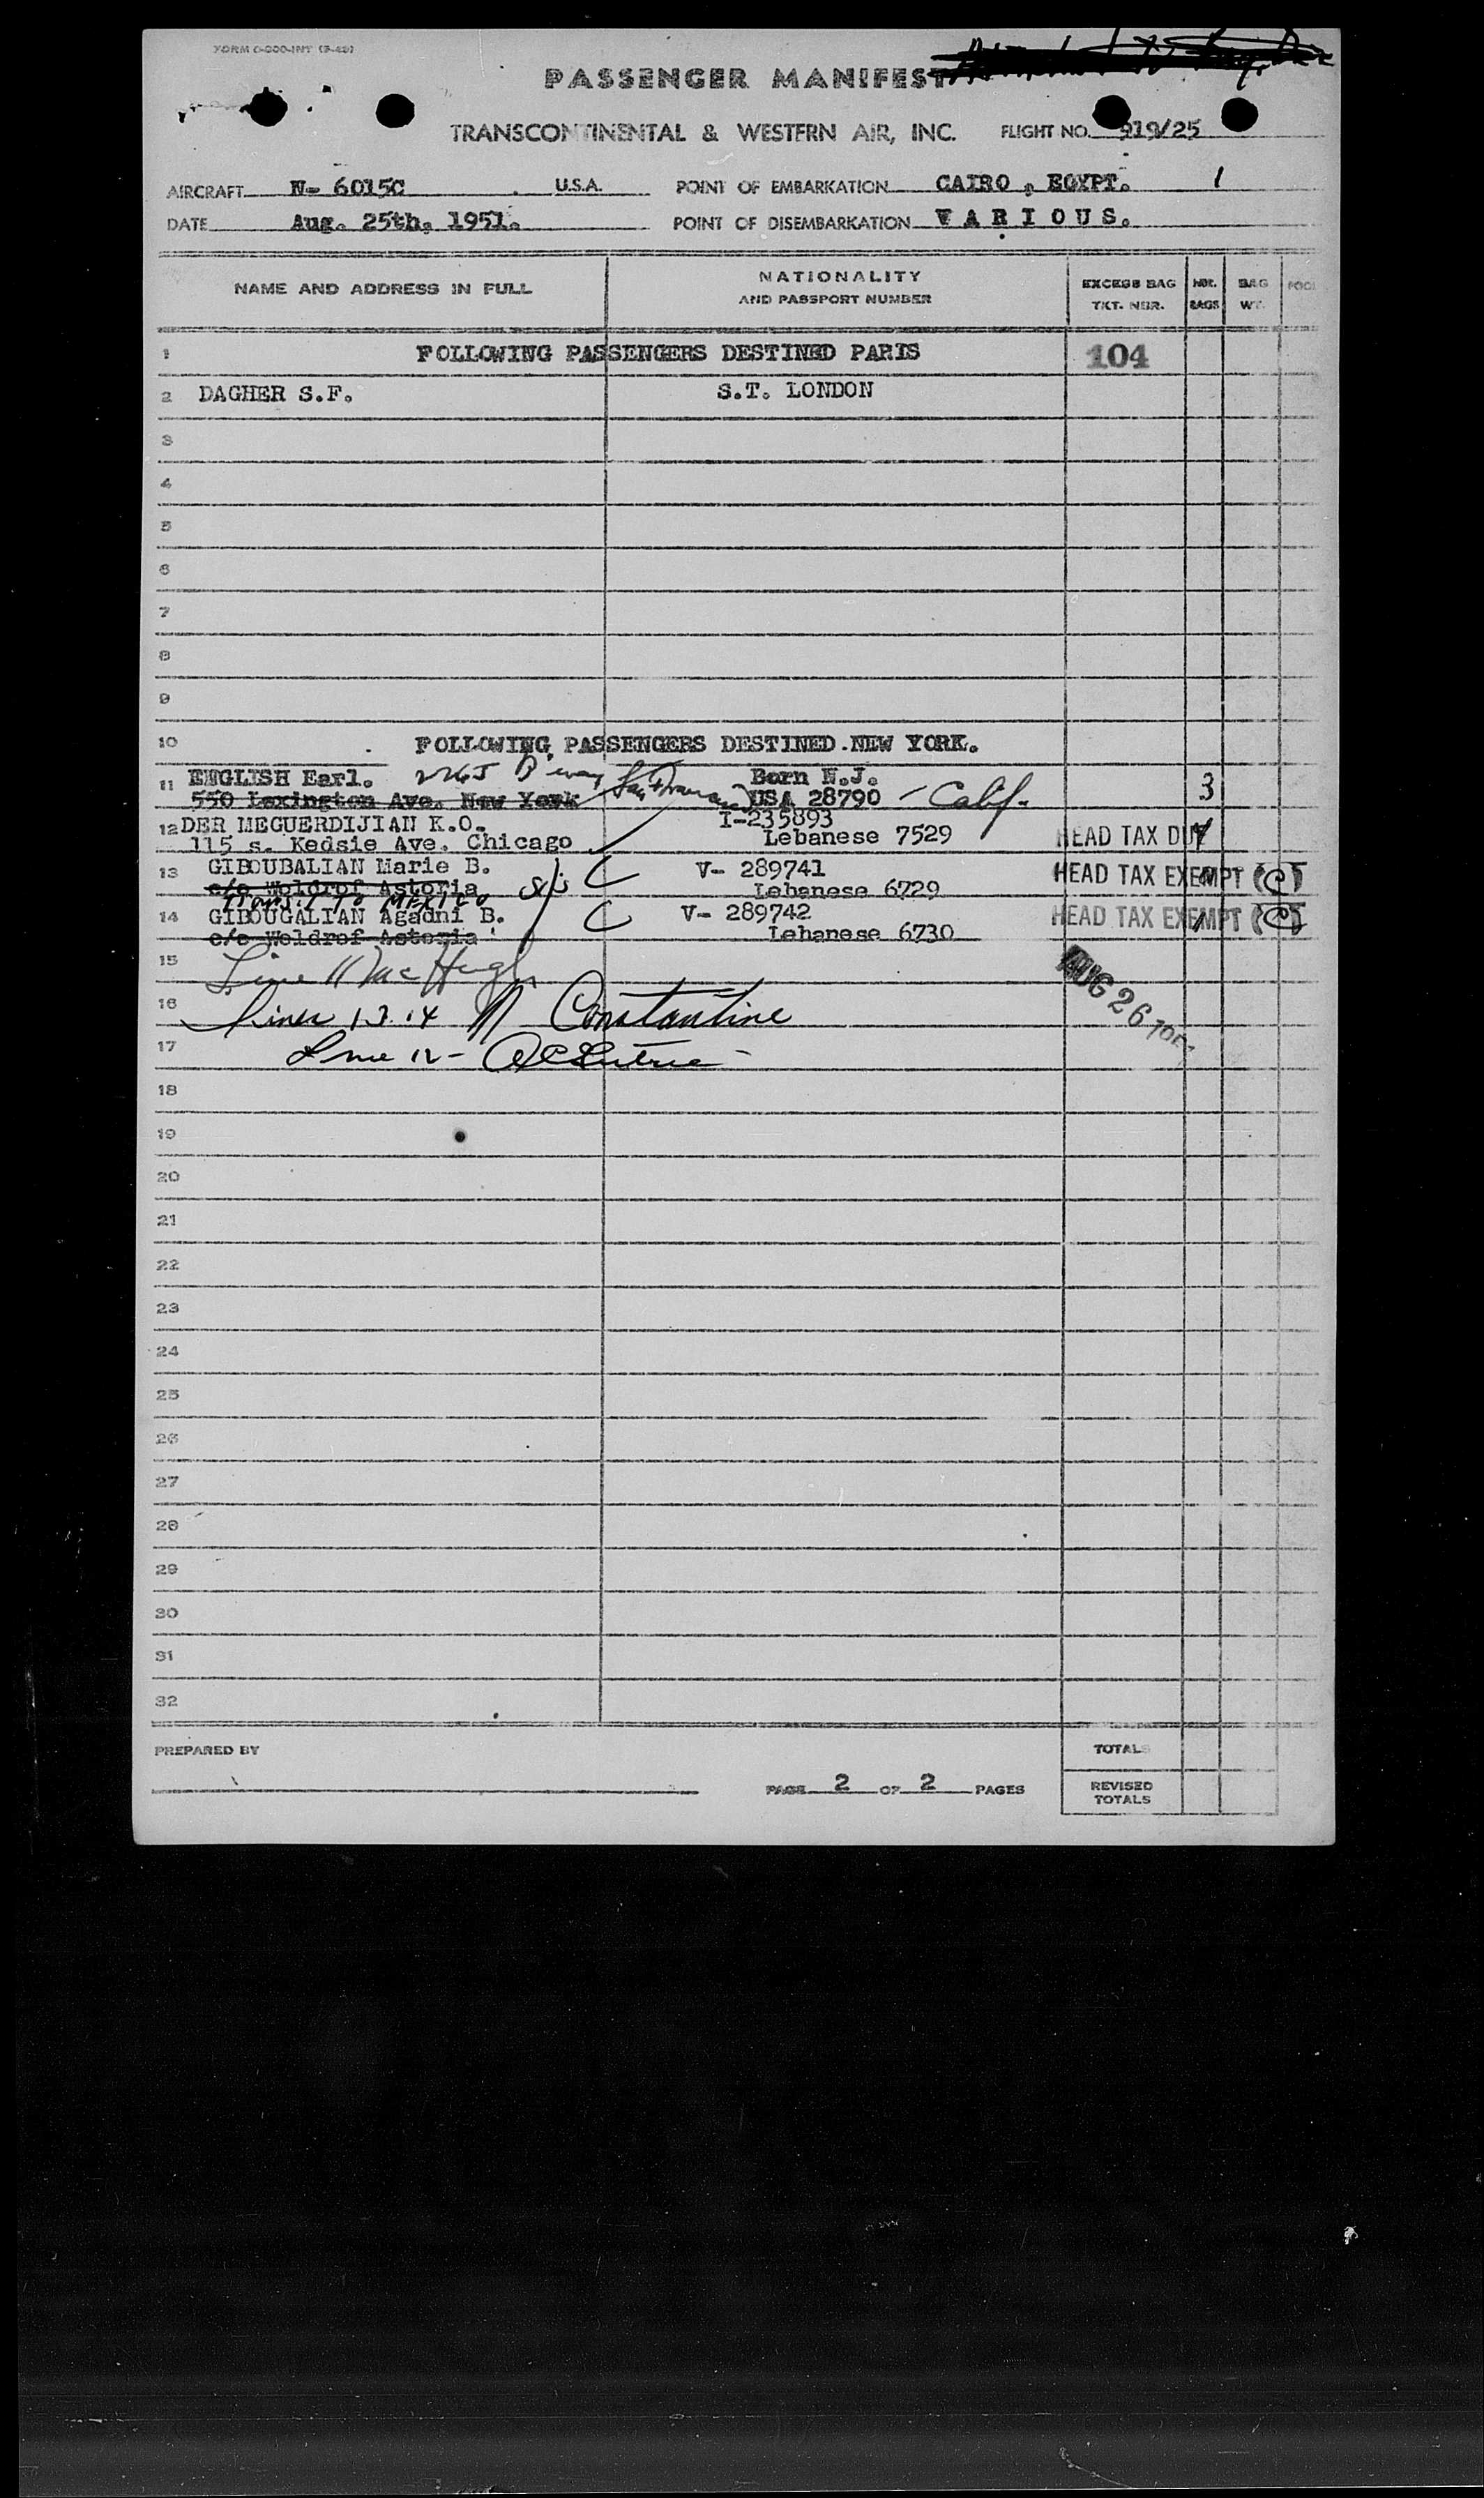 PASSENGER MANIFEST
TRANSCONTINENTAL & WESTERN AIR, INC. FLIGHT NO. 919/25
AIRCRAFT N- 6015C U.S.A. POINT OF EMBARKATION CAIRO , EGYPT. 1
DATE Aug. 25th, 1951. POINT OF DISEMBARKATION V A R I O U S.
NAME AND ADDRESS IN FULL
NATIONALITY
AND PASSPORT NUMBER
EXCESS BAG
TKT. NBR.
NBR.
BAGS
BAG
WT.
1 FOLLOWING PASSENGERS DESTINED PARIS 104
2 DAGHER S.F. S.T. LONDON
3
4
5
6
7
8
9
10 FOLLOWING PASSENGERS DESTINED NEW YORK.
11 ENGLISH Earl. Born N.J.
550 Lexington Ave. New York San Francisco USA 28790 - Calif. 3
12 DER MEGUERDIJIAN K.O. I-235893
115 s. Kedsie Ave. Chicago Lebanese 7529 HEAD TAX DUE
13 GIBOUBALIAN Marie B. V- 289741 HEAD TAX EXEMPT (C)
c/o Woldrof Astoria Lebanese 6729
Transit to MEXICO
14 GIBOUGALIAN Agadni B. V- 289742 HEAD TAX EXEMPT (C)
c/o Woldrof Astoria Lebanese 6730
15 Line 11 McHugh
AUG 26
16 Lines 13.14 N Constantine
17 Line 12 -
18
19
20
21
22
23
24
25
26
27
28
29
30
31
32
PREPARED BY
TOTALS
PAGE 2 OF 2 PAGES
REVISED
TOTALS